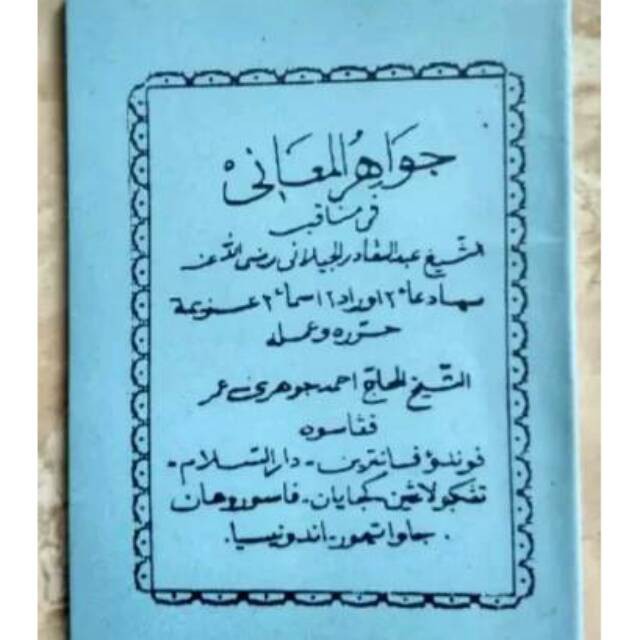 جَوَاهِرُ المَعَانِى
فى مناقب
الشّيخ عبد القادر الجيلانى رضى الله عنه
سهادعا٢ اوراد٢ اسماء٢ عزيمة
حرّره وعمله
الشّيخ الحاج احمد جوهرى عمر
فڠاسوه
فوندؤ فسانترين - دار السّلام -
تڠكولاڠين كجايان - فاسوروهان
. جاوا تيمور - اندونيسيا .